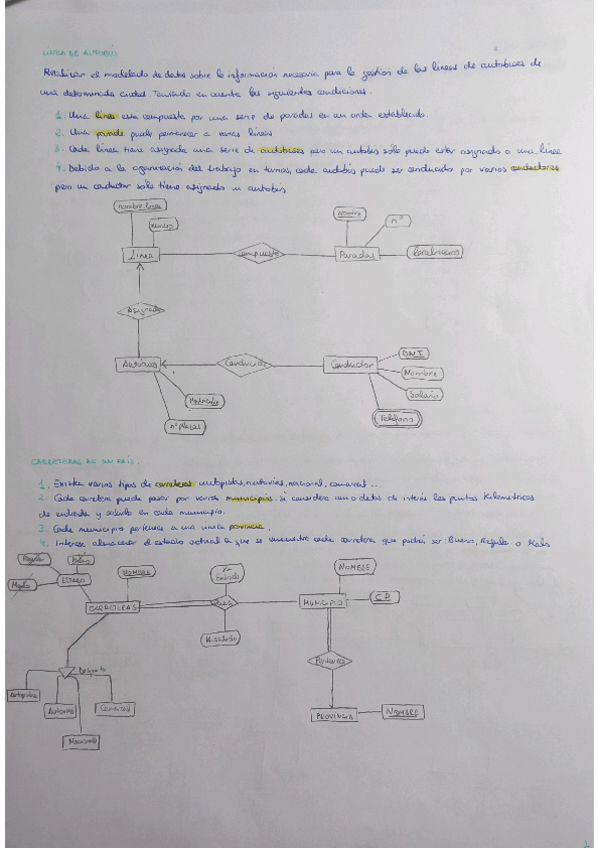 LÍNEA DE AUTOBÚS
Realizar el modelado de datos sobre la información necesaria para la gestión de las líneas de autobuses de
una determinada ciudad. Teniendo en cuenta las siguientes condiciones.
1. Una línea esta compuesta por una serie de paradas en un orden establecido.
2. Una parada puede pertenecer a varias líneas
3. Cada línea tiene asignada una serie de autobuses pero un autobús sólo puede estar asignado a una línea
4. Debido a la organización del trabajo en turnos, cada autobús puede ser conducido por varios conductores
pero un conductor sólo tiene asignado un autobús
nombre línea
número
Línea
compuesta
Paradas
Nombre
nº
Asignado
Autobus
Matrícula
nº plazas
Conducido
Conductor
DNI
Nombre
Salario
Teléfono
CARRETERAS DE UN PAÍS.
1. Existen varios tipos de carreteras: autopistas, autovías, nacional, comarcal...
2. Cada carretera puede pasar por varios municipios. Si considera como datos de interés los puntos kilométricos
de entrada y salida en cada municipio.
3. Cada municipio pertenece a una única provincia.
4. Interesa almacenar el estado actual en que se encuentra cada carretera que podrá ser: Bueno, Regular o Malo
Regular
Malo
ESTADO
NOMBRE
CARRETERAS
MUNICIPIO
NOMBRE
CP
Pertenece
PROVINCIA
NOMBRE
Autopistas
Autovías
Nacional
Comarcal
1